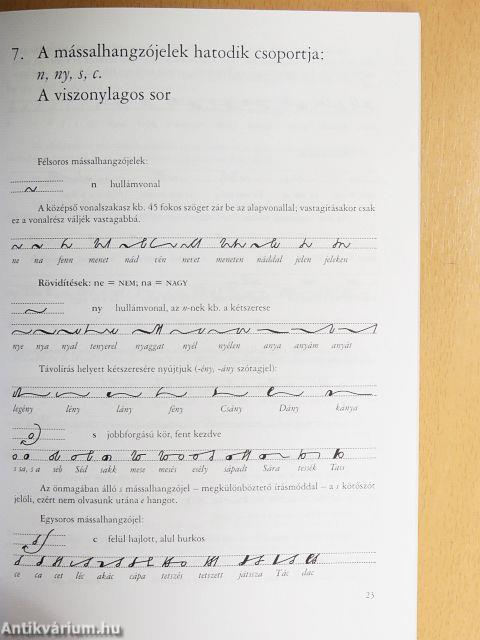 7. A mássalhangzójelek hatodik csoportja:
n, ny, s, c.
A viszonylagos sor
Félsoros mássalhangzójelek:
n hullámvonal
A középső vonalszakasz kb. 45 fokos szöget zár be az alapvonallal; vastagításakor csak
ez a vonalrész váljék vastagabbá.
ne na fenn menet nád vén nevet meneten náddal jelen jeleken
Rövidítések: ne = NEM; na = NAGY
ny hullámvonal, az n-nek kb. a kétszerese
nye nya nyal tenyerel nyaggat nyél nyélen anya anyám anyát
Távolírás helyett kétszeresére nyújtjuk (-ény, -ány szótagjel):
legény lény lány fény Csány Dány kánya
s jobbforgású kör, fent kezdve
s sa, s a seb Séd sakk mese mesés esély sápadt Sára tessék Tass
Az önmagában álló s mássalhangzójel – megkülönböztető írásmóddal – a s kötőszót
jelöli, ezért nem olvasunk utána e hangot.
Egysoros mássalhangzójel:
c felül hajlott, alul hurkos
ce ca cet léc akác cápa tetszés tetszett játssza Tác dac
23
Antikvárium.hu